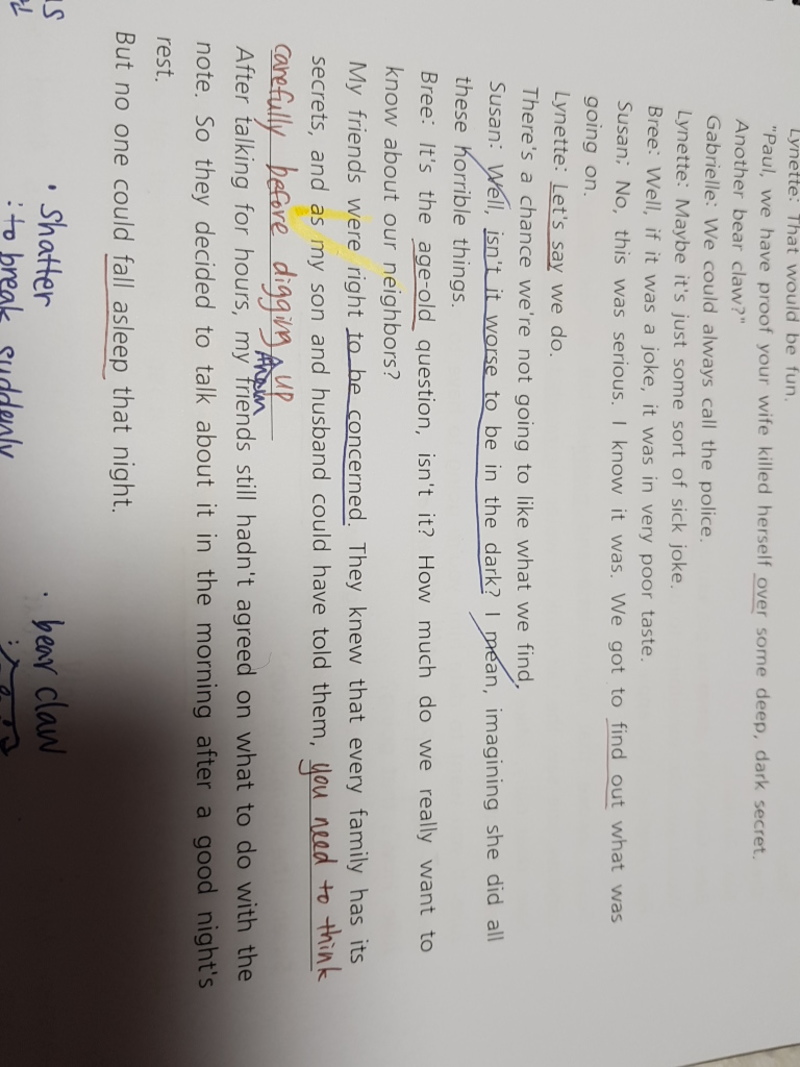 Lynette: That would be fun.
"Paul, we have proof your wife killed herself over some deep, dark secret.
Another bear claw?"
Gabrielle: We could always call the police.
Lynette: Maybe it's just some sort of sick joke.
Bree: Well, if it was a joke, it was in very poor taste.
Susan: No, this was serious. I know it was. We got to find out what was
going on.
Lynette: Let's say we do.
There's a chance we're not going to like what we find.
Susan: Well, isn't it worse to be in the dark? I mean, imagining she did all
these horrible things.
Bree: It's the age-old question, isn't it? How much do we really want to
know about our neighbors?
My friends were right to be concerned. They knew that every family has its
secrets, and as my son and husband could have told them, you need to think
carefully before digging up
them
After talking for hours, my friends still hadn't agreed on what to do with the
note. So they decided to talk about it in the morning after a good night's
rest.
But no one could fall asleep that night.
• Shatter
: to break suddenly
• bear claw